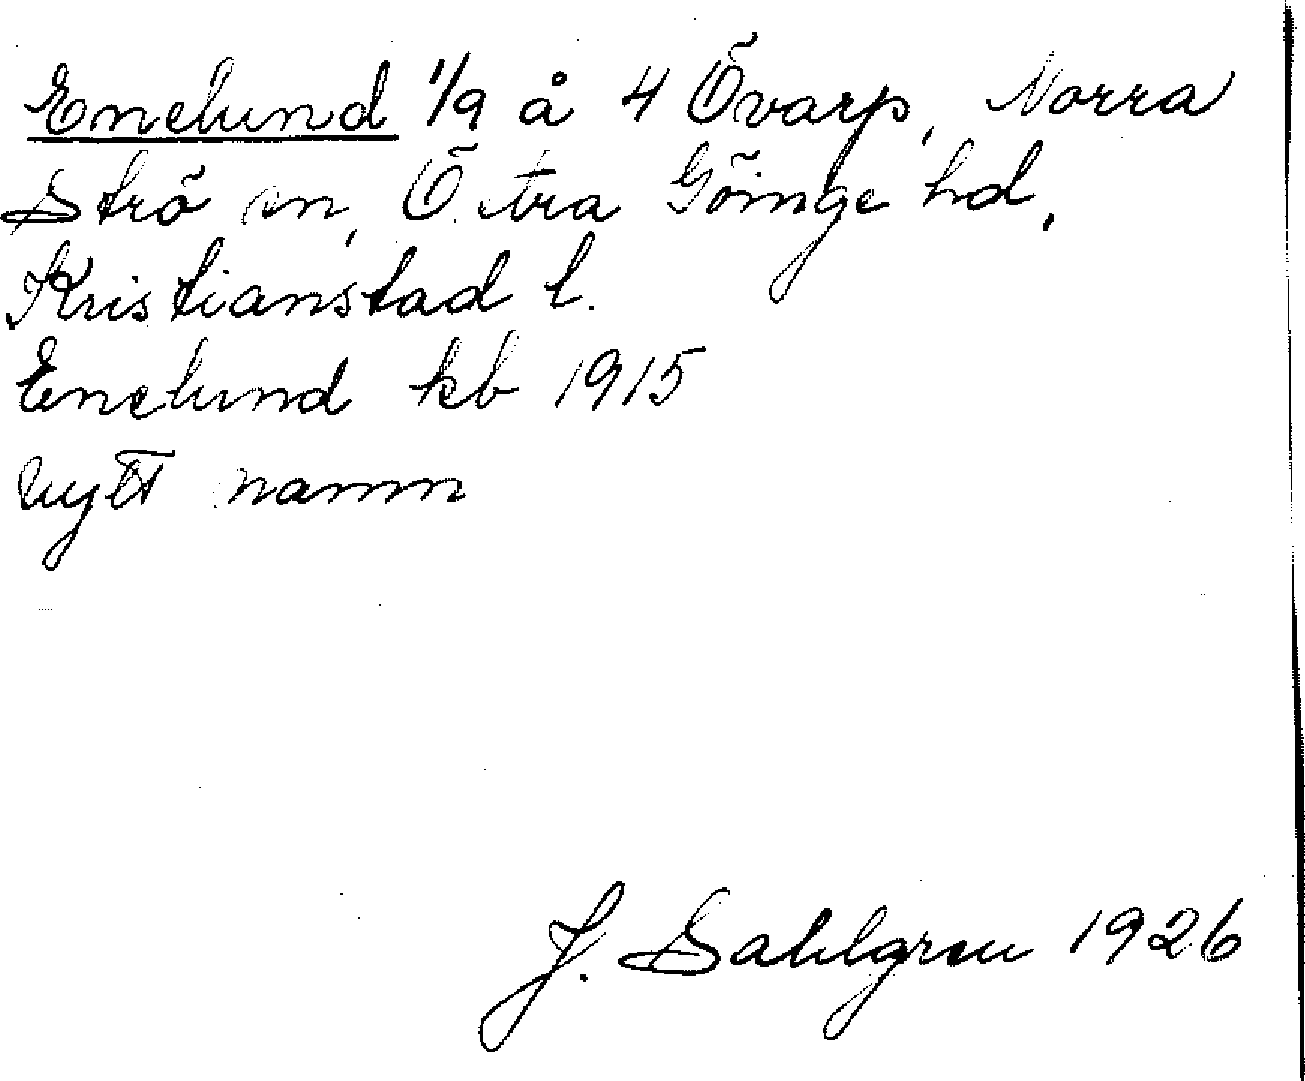 Enelund 1/9 å 4 Övarp, Norra
Strö sn, Ö. tra Göinge hd,
Kristianstad l.
Enelund kb 1915
nytt namn
J. Sahlgren 1926